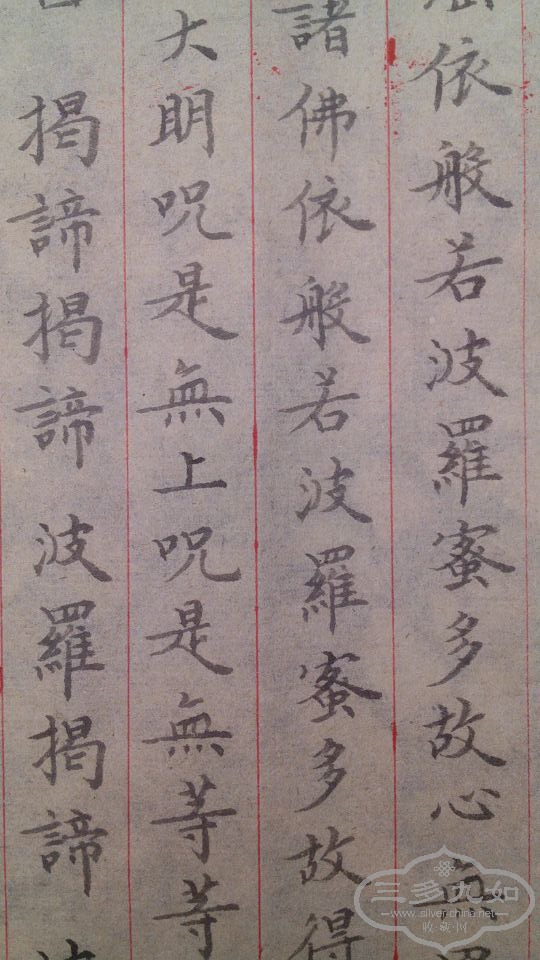 依般若波羅蜜多故心無
諸佛依般若波羅蜜多故得
大明呪是無上呪是無等等
揭諦揭諦 波羅揭諦
三多九如
www.silver-china.net
收藏网